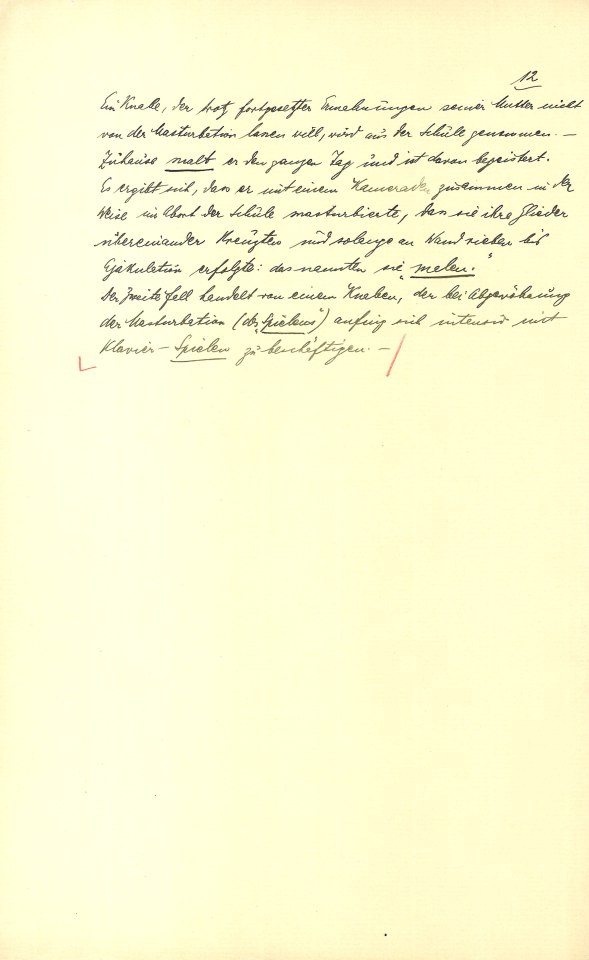 12
Ein Knabe, der trotz fortgesetzter Ermahnungen seiner Mutter nicht
von der Masturbation lassen will, wird aus der Schule genommen. —
Zuhause malt er den ganzen Tag und ist davon begeistert.
Es ergibt sich, dass er mit einem Kameraden zusammen in der
Weise im Abort der Schule masturbierte, dass sie ihre Glieder
übereinander kreuzten und solange an Wand rieben bis
Ejakulation erfolgte: das nannten sie „malen."
Der zweite Fall handelt von einem Knaben, der bei Abgewöhnung
der Masturbation (des „Spielens") anfing sich intensiv mit
Klavier-Spielen zu beschäftigen. —